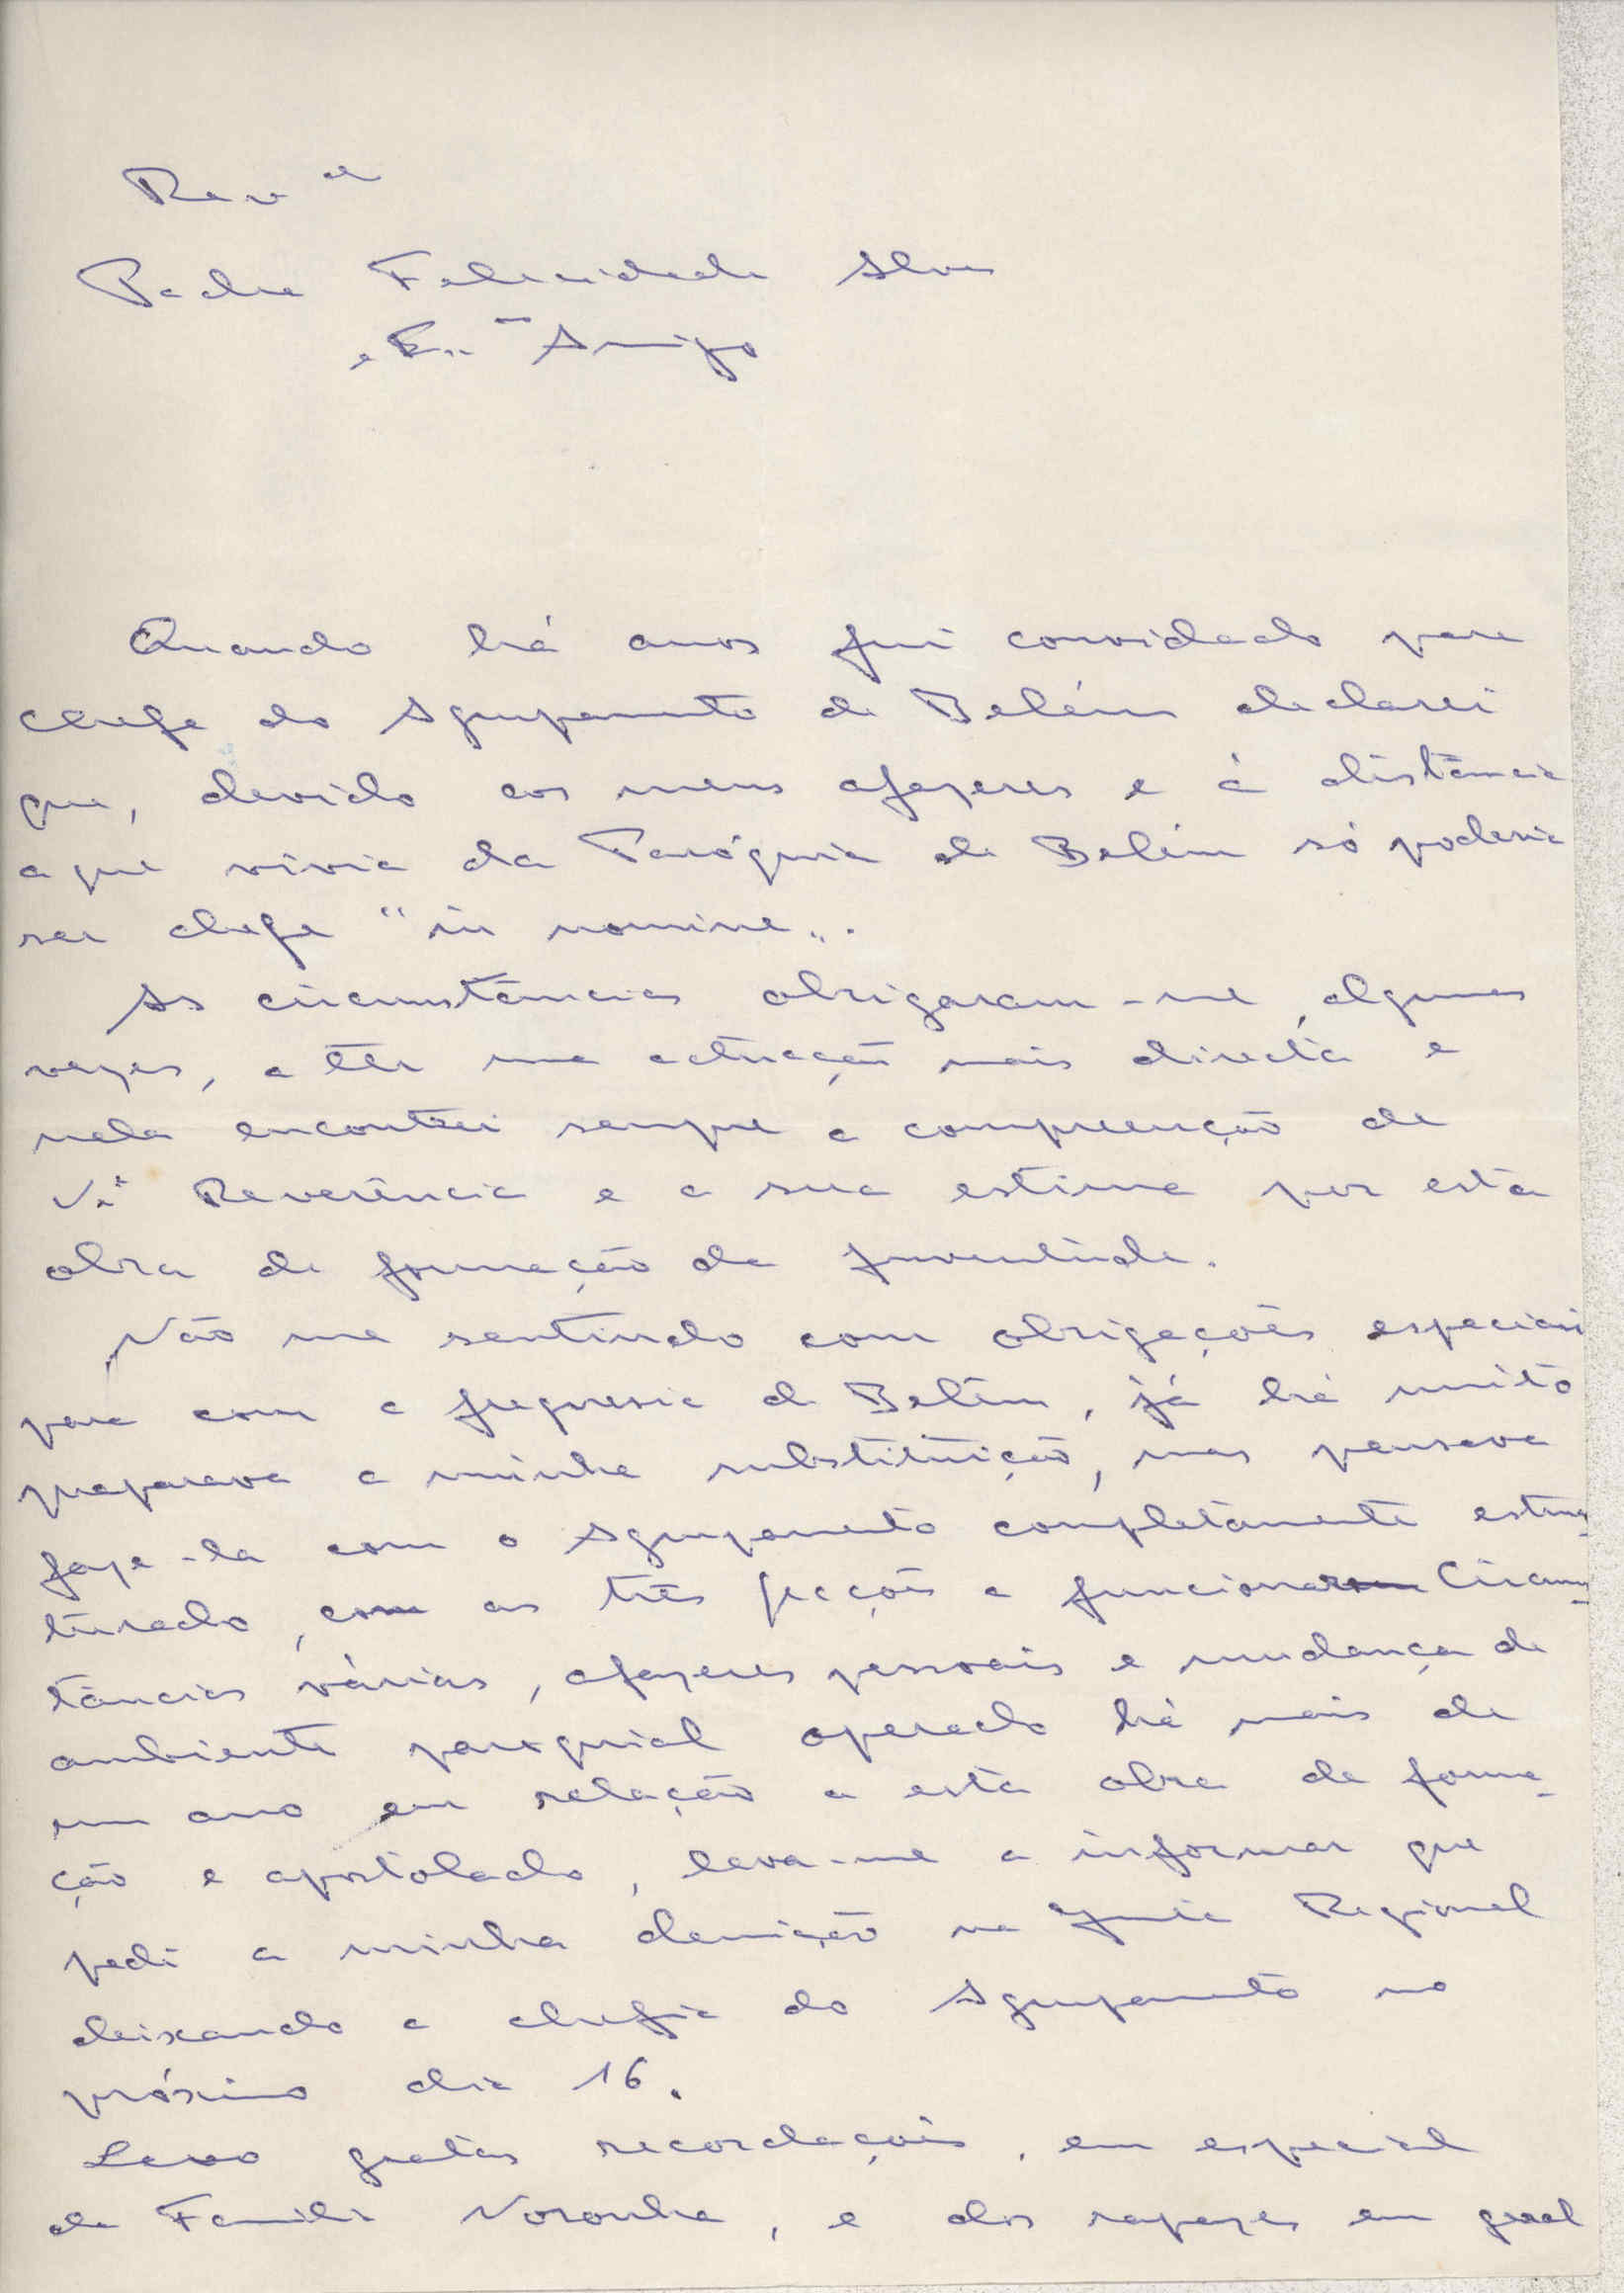 Rev.º
Padre Felicidade Alves
e Ex.mo Amigo
Quando há anos fui convidado para
chefe do Agrupamento de Belém declarei
que, devido aos meus afazeres e à distância
a que vivia da Paróquia de Belém só poderia
ser chefe "in nomine".
As circunstâncias obrigaram-me, algumas
vezes, a ter uma actuação mais directa e
nela encontrei sempre a compreenção de
V.ª Reverência e a sua estima por esta
obra de formação da juventude.
Não me sentindo com obrigações especiais
para com a freguesia de Belém, já há muito
preparava a minha substituição, mas pensava
faze-la com o Agrupamento completamente estru-
turado, com as três secções a funcionarem Circuns-
tâncias várias, afazeres pessoais e mudança de
ambiente paroquial operado há mais de
um ano em relação a esta obra de forma-
ção e apostolado, leva-me a informar que
pedi a minha demição na Junta Regional
deixando a chefia do Agrupamento no
próximo dia 16.
Levo gratas recordações, em especial
da Família Noronha, e dos rapazes em geral